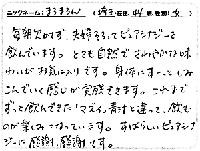 ニックネーム：まるまるん （埼玉 在住 44歳 女）
毎朝欠かさず、夫婦そろってピュアシナジーを
飲んでいます。とても自然でさわやかな味
わいがお気に入りです。身体にすーっとしみ
こんでいく感じが実感できます。これまで
ずっと飲んできた「マズイ」青汁と違って、飲む
のが楽しみになっています。すばらしいピュアシナ
ジーに感謝、感謝です。